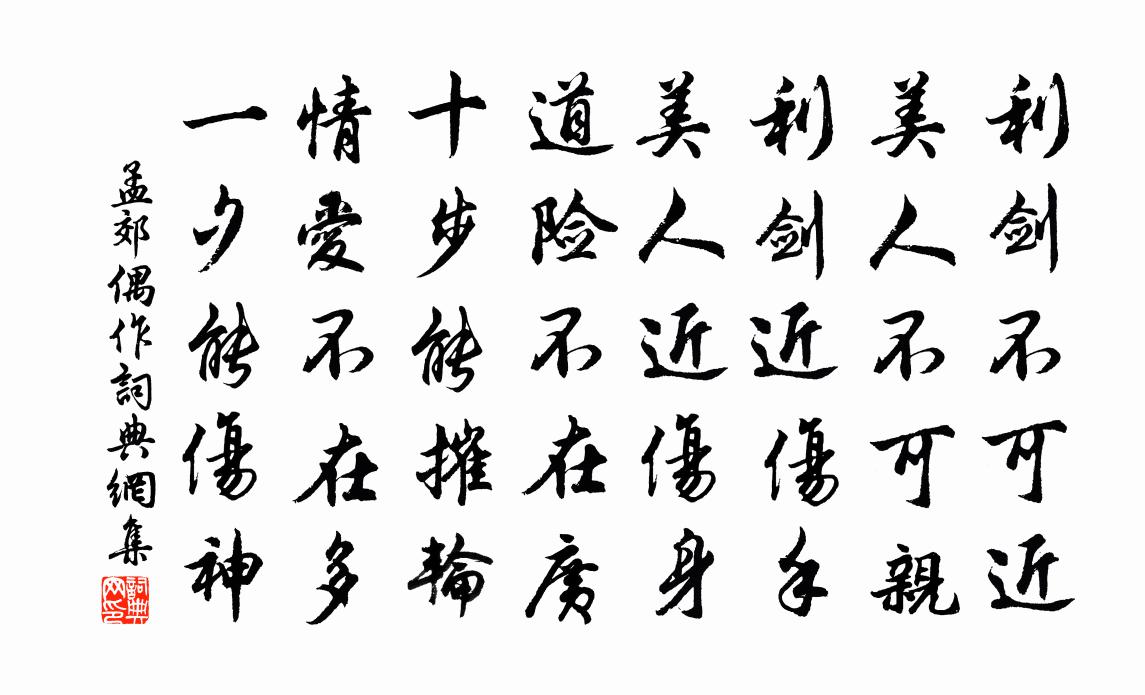 利剑不可近
美人不可親
利剑近傷手
美人近傷身
道险不在廣
十步能摧輪
情愛不在多
一夕能傷神
孟郊偶作詞典網集
詞典网印